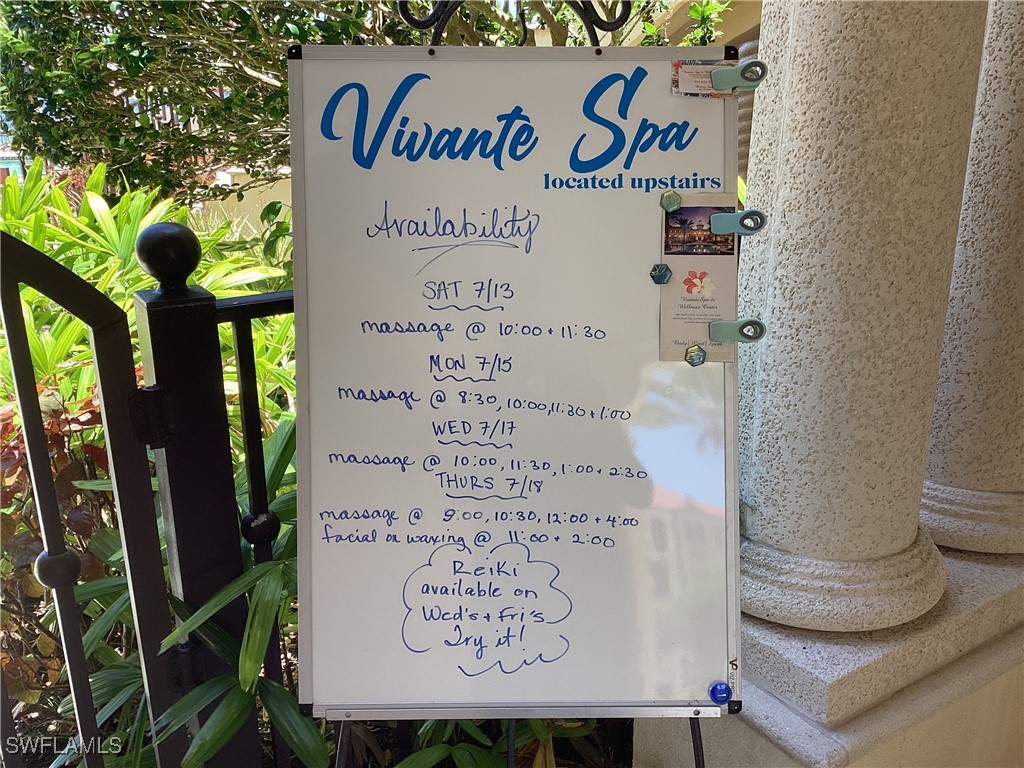 Vivante Spa
located upstairs
Availability
SAT 7/13
massage @ 10:00 + 11:30
MON 7/15
massage @ 8:30, 10:00, 11:30 + 1:00
WED 7/17
massage @ 10:00, 11:30, 1:00 + 2:30
THURS 7/18
massage @ 9:00, 10:30, 12:00 + 4:00
facial or waxing @ 11:00 + 2:00
Reiki
available on
Wed's + Fri's
Try it!
Vivante Spa &
Wellness Center
SWFLAMLS